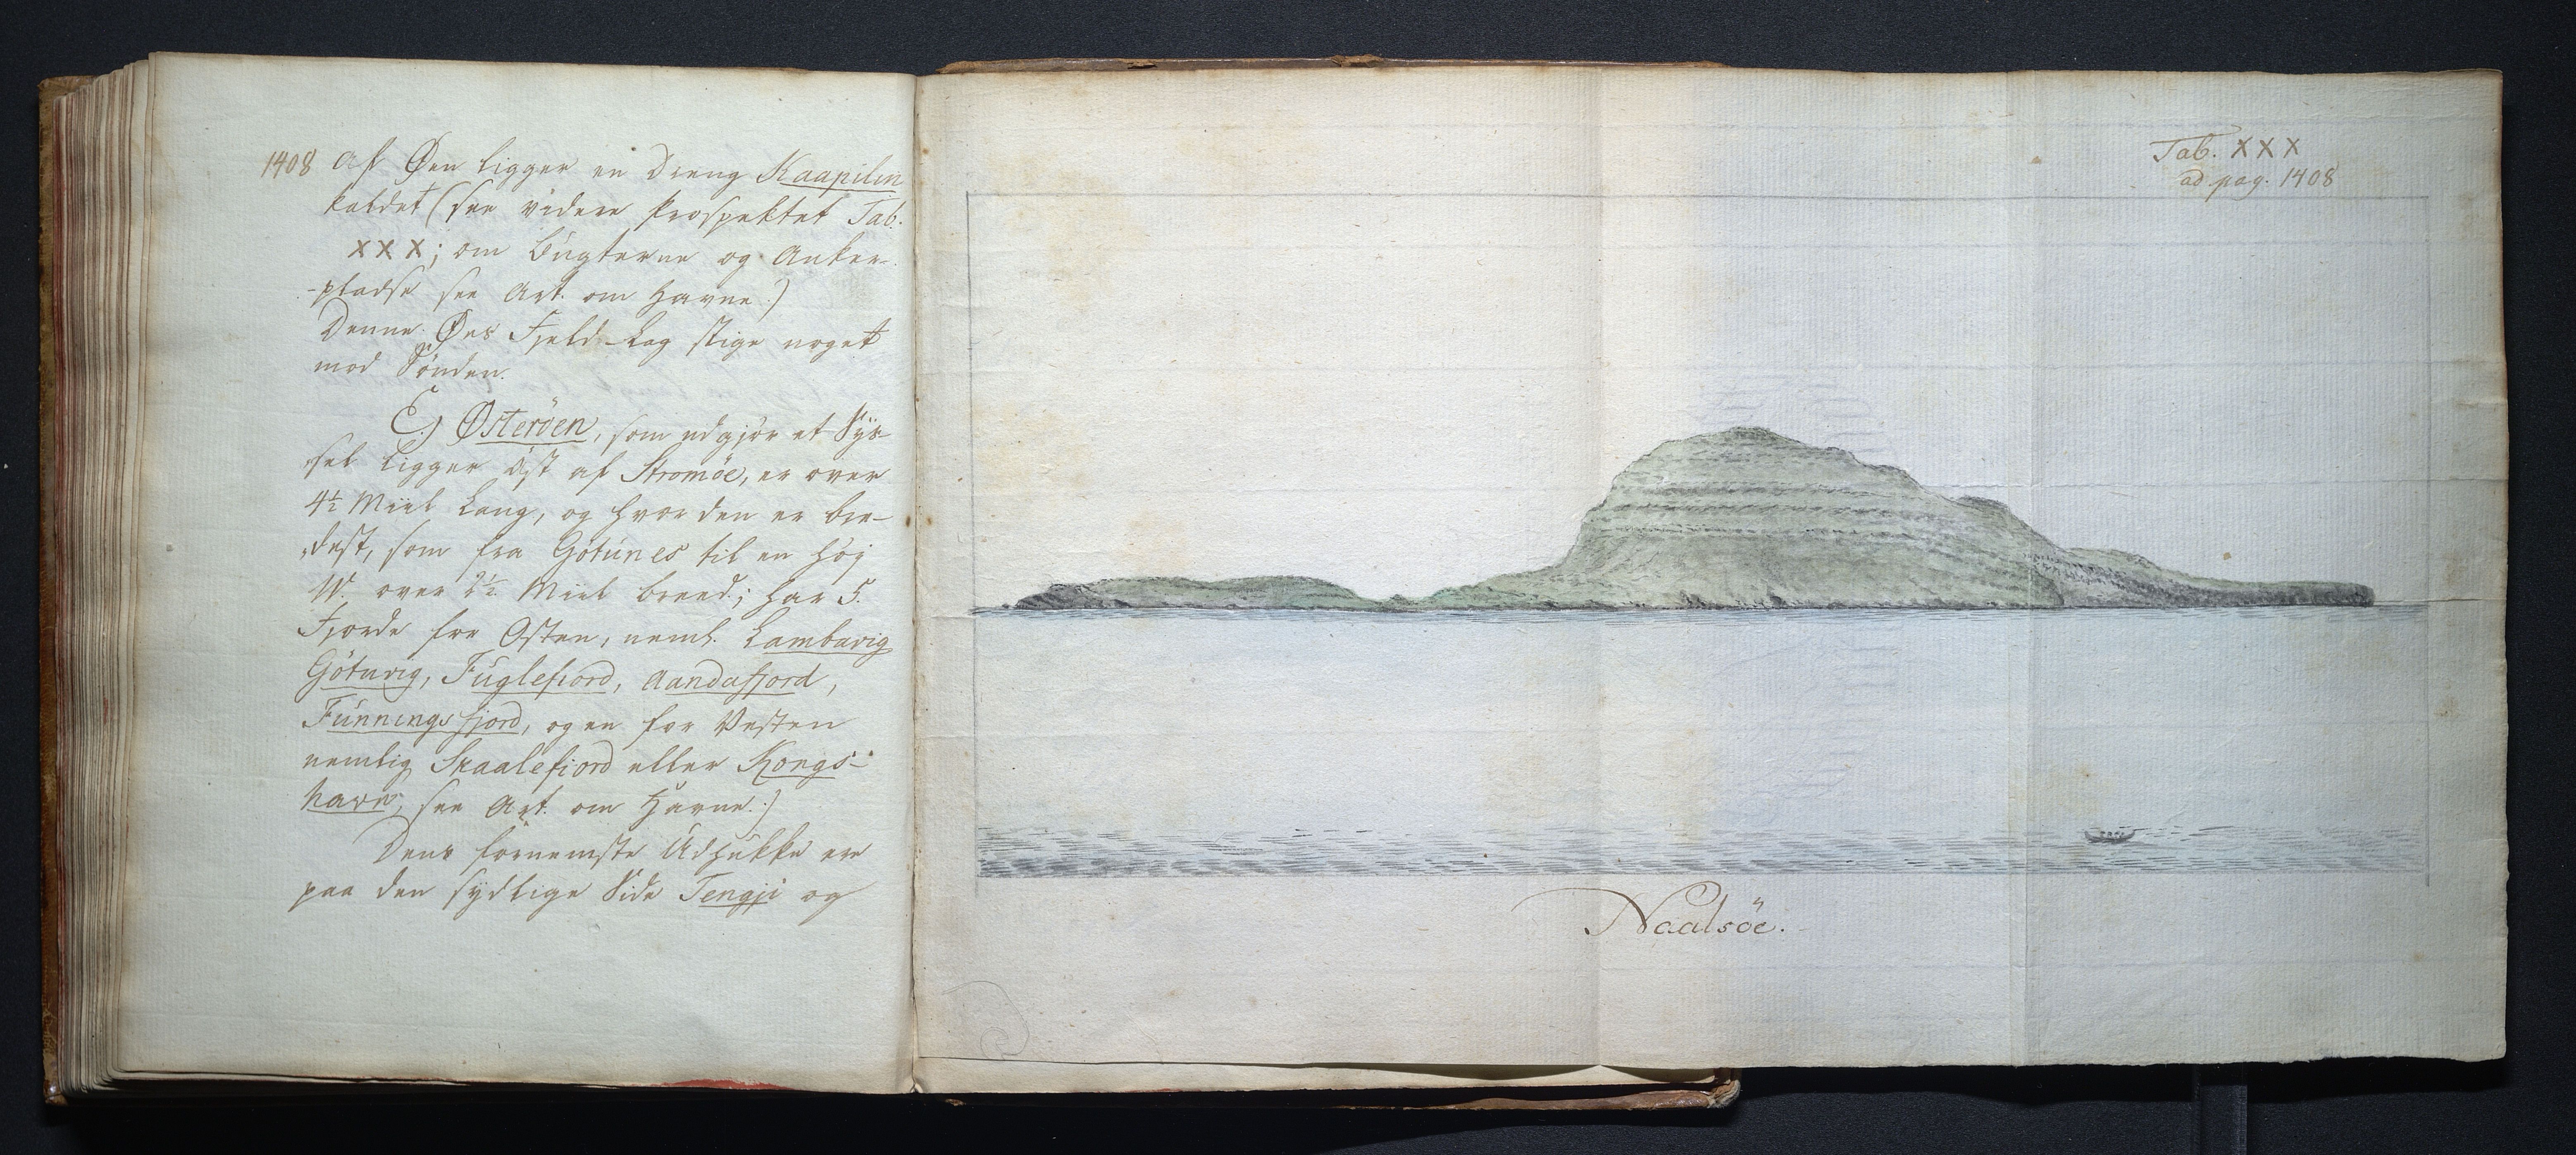 1408 af Øen ligger en Dreng Kaapilin
kaldet (see videre Prospektet Tab.
XXX; om Bugterne og Anker-
-pladse see Art. om Havne.)
Denne Øes Fjeld-Lag stige noget
mod Sønden.
E.) Østeröen, som udgjør et Sys-
sel ligger Øst af Stromöe, er over
4½ Miil Lang, og hvor den er bre-
dest, som fra Götunes til en Høj
W. over 2½ Miil breed.; har 5.
Fjorde for Osten, neml. Lambavig
Götuvig, Fuglefiord, Aandafjord,
Funningsfjord, og en for Vesten
nemlig Skaalefiord eller Kongs-
havn, see Art. om Havne.)
Dens fornemste Udhukke ere
paa den sydlige Side Tengji og
Tab. XXX
ad pag. 1408
Naalsöe.